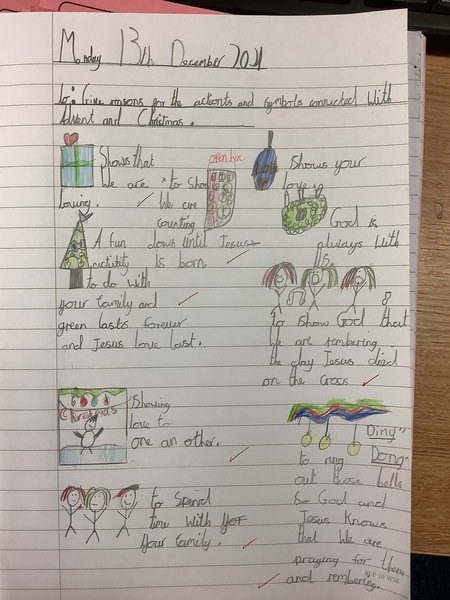 Monday 13th December 2021
to: Give reasons for the actionts and symbols connected With
Advent and Christmas.
Shows that
We are
loving.
open bye
* to Show
We are
counting
down until Jesus
is born.
Shows your
love.
God is
always With
us.
A fun
activity
to do with
your family and
green lasts forever
and Jesus love last.
to show God that
We are rembering
the day Jesus died
on the Cross
Christmas
Showing
love to
one an other.
"Ding"
Dong"
to ring
out those bells
so God and
Jesus Knows
that We are
praying for them
and rembering.
to Spend
time With
your family.